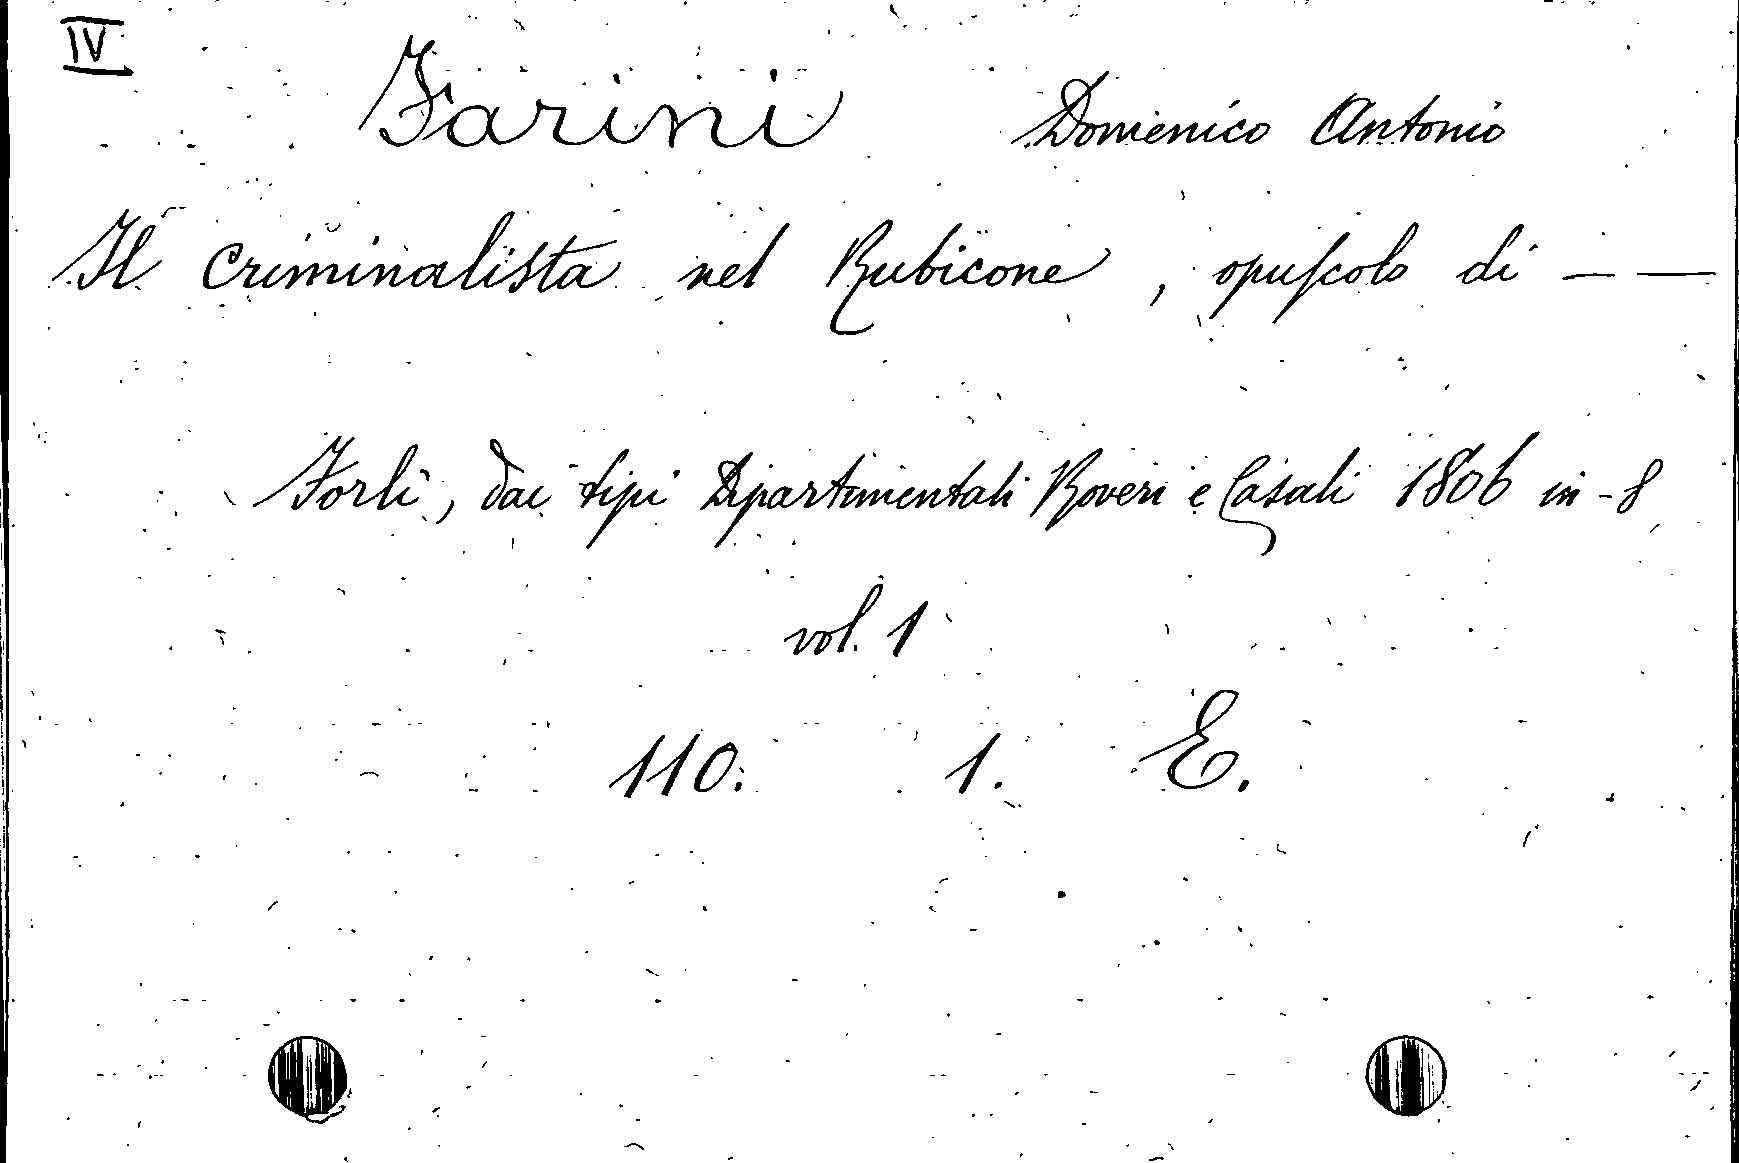 IV
Farini Domenico Antonio
Il criminalista nel Rubicone, opuscolo di — —
Forlì, dai tipi Dipartimentali Roveri e Casali 1806 in-8
vol. 1
110. 1. E.